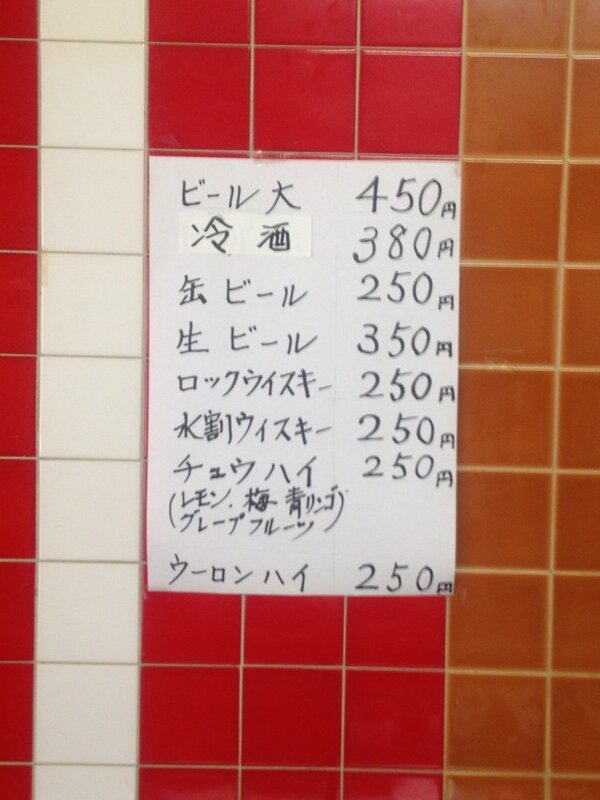 ビール大 450円
冷酒 380円
缶ビール 250円
生ビール 350円
ロックウイスキー 250円
水割ウィスキー 250円
チュウハイ 250円
(レモン.梅.青リンゴ
グレープフルーツ)
ウーロンハイ 250円